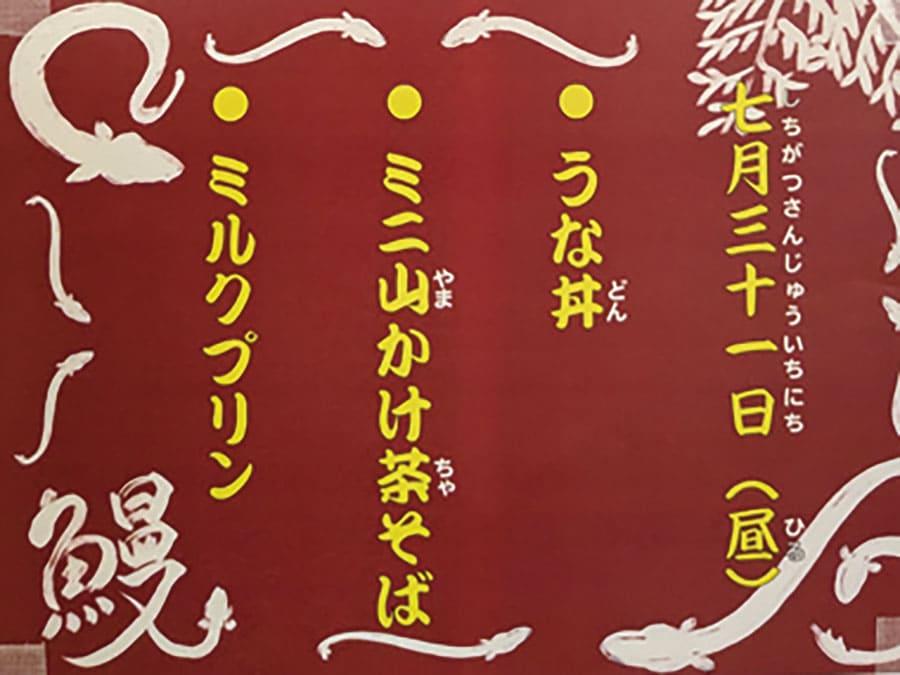 七月三十一日（昼）
しちがつさんじゅういちにち
ひる
● うな丼
どん
● ミニ山かけ茶そば
やま
ちゃ
● ミルクプリン
鰻